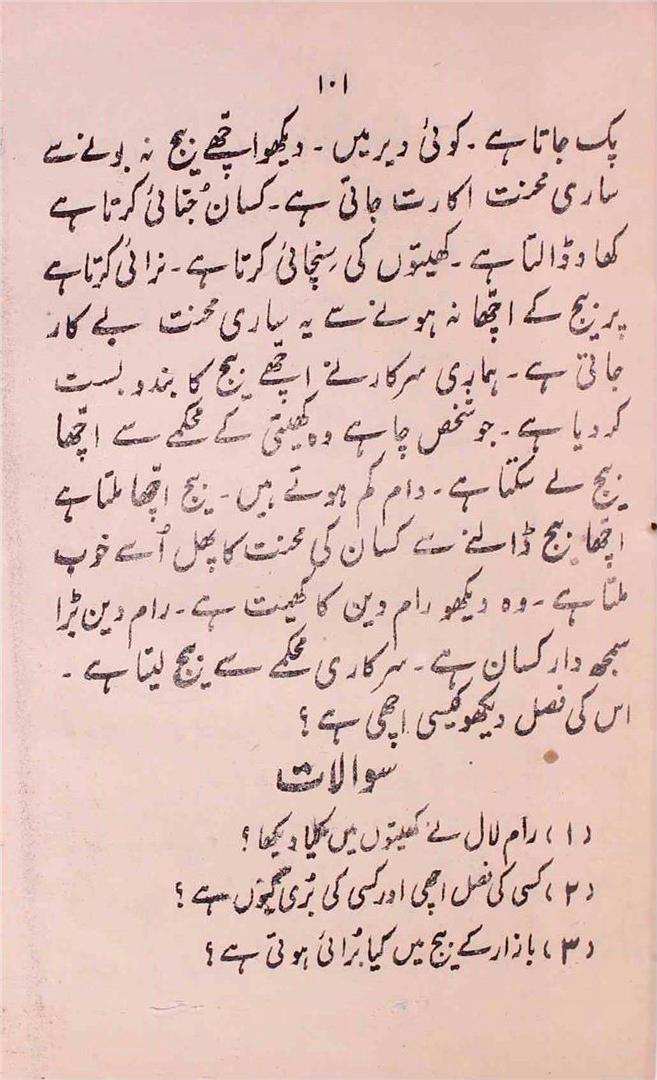 ۱۰۱
پک جاتا ہے۔ کوئی دیر میں۔ دیکھو اچھّے بیج نہ بونے سے
ساری محنت اکارت جاتی ہے۔ کسان جُتائی کرتا ہے
کھاد ڈالتا ہے۔ کھیتوں کی سِنچائی کرتا ہے۔ نرائی کرتا ہے
پر بیج کے اچھّا نہ ہونے سے یہ ساری محنت بے کار
جاتی ہے۔ ہماری سرکار نے اچھّے بیج کا بندوبست
کر دیا ہے۔ جو شخص چاہے وہ کھیتی کے محکمے سے اچھّا
بیج لے سکتا ہے۔ دام کم ہوتے ہیں۔ بیج اچھّا ملتا ہے
اچھّا بیج ڈالنے سے کسان کی محنت کا پھل اُسے خوب
ملتا ہے۔ وہ دیکھو رام دین کا کھیت ہے۔ رام دین بڑا
سمجھ دار کسان ہے۔ سرکاری محکمے سے بیج لیتا ہے۔
اس کی فصل دیکھو کیسی اچھی ہے؟
سوالات
(۱) رام لال نے کھیتوں میں کیا دیکھا؟
(۲) کسی کی فصل اچھی اور کسی کی بُری کیوں ہے؟
(۳) بازار کے بیج میں کیا بُرائی ہوتی ہے؟